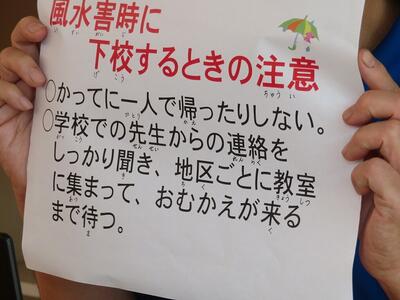 風水害時に
下校するときの注意
○かってに一人で帰ったりしない。
○学校での先生からの連絡を
しっかり聞き、地区ごとに教室
に集まって、おむかえが来る
まで待つ。